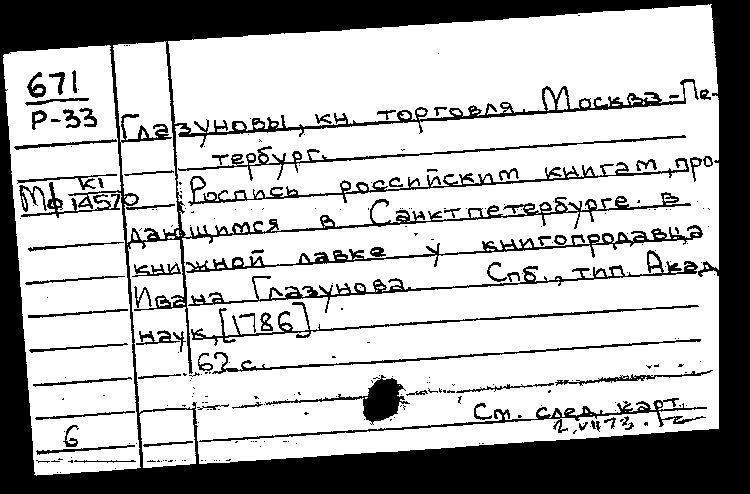 671
Р-33
Глазуновы, кн. торговля. Москва-Пе-
тербург.
Мф К1
14570
Роспись российским книгам, про-
дающимся в Санктпетербурге в
книжной лавке у книгопродавца
Ивана Глазунова. Спб., тип. Акад.
наук, [1786].
62 с.
См. след. карт.
6